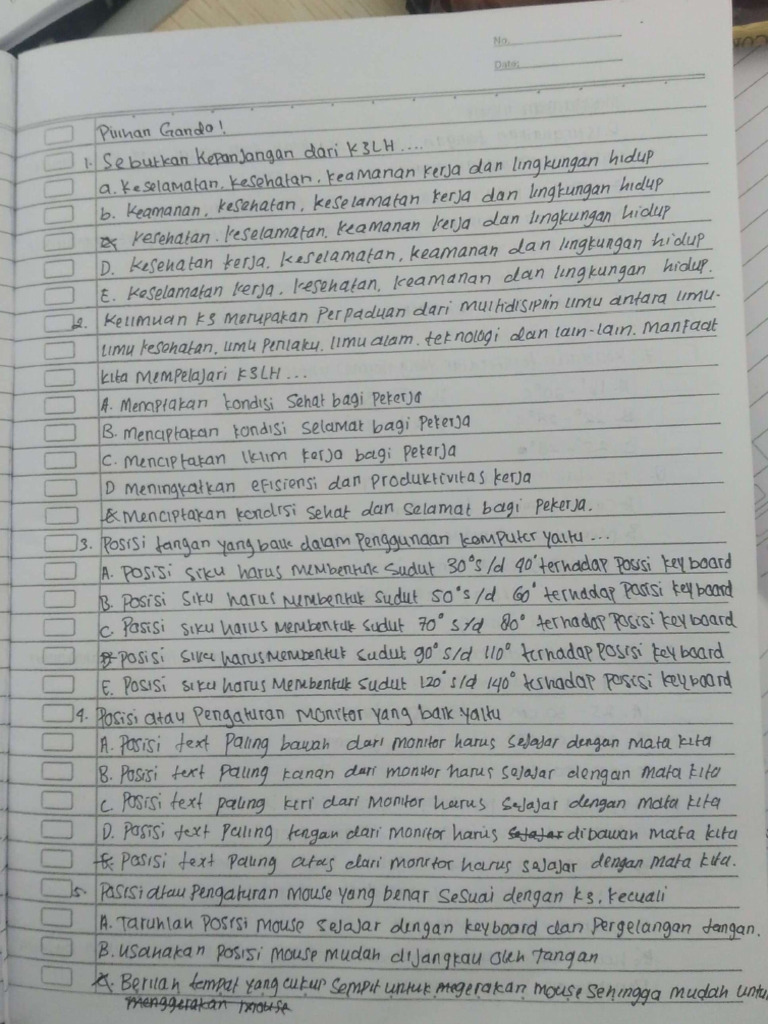 No.
Date:
Pilihan Ganda!
1. Sebutkan kepanjangan dari K3LH ....
a. keselamatan, kesehatan, keamanan kerja dan lingkungan hidup
b. keamanan, kesehatan, keselamatan kerja dan lingkungan hidup
kesehatan, keselamatan, keamanan kerja dan lingkungan hidup
D. kesehatan kerja, keselamatan, keamanan dan lingkungan hidup
E. keselamatan kerja, kesehatan, keamanan dan lingkungan hidup.
2. Keilmuan K3 merupakan perpaduan dari multidisiplin ilmu antara ilmu-
ilmu kesehatan, ilmu perilaku, ilmu alam, teknologi dan lain-lain. Manfaat
kita mempelajari K3LH ...
A. Menciptakan kondisi sehat bagi pekerja
B. Menciptakan kondisi selamat bagi pekerja
C. Menciptakan iklim kerja bagi pekerja
D meningkatkan efisiensi dan produktivitas kerja
E. Menciptakan kondisi sehat dan selamat bagi pekerja.
3. Posisi tangan yang baik dalam penggunaan komputer yaitu ...
A. Posisi siku harus membentuk sudut 30° s/d 40° terhadap posisi keyboard
B. Posisi siku harus membentuk sudut 50° s/d 60° terhadap posisi keyboard
C. Posisi siku harus membentuk sudut 70° s/d 80° terhadap posisi keyboard
D. Posisi siku harus membentuk sudut 90° s/d 110° terhadap posisi keyboard
E. Posisi siku harus membentuk sudut 120° s/d 140° terhadap posisi keyboard
4. Posisi atau pengaturan monitor yang baik yaitu
A. Posisi text paling bawah dari monitor harus sejajar dengan mata kita
B. Posisi text paling kanan dari monitor harus sejajar dengan mata kita
C. Posisi text paling kiri dari monitor harus sejajar dengan mata kita
D. Posisi text paling tengah dari monitor harus sejajar dibawah mata kita
E. Posisi text paling atas dari monitor harus sejajar dengan mata kita.
5. Posisi atau pengaturan mouse yang benar sesuai dengan K3, kecuali
A. Taruhlah posisi mouse sejajar dengan keyboard dan pergelangan tangan.
B. usahakan posisi mouse mudah dijangkau oleh tangan
Berilah tempat yang cukup sempit untuk megerakan mouse sehingga mudah untuk
menggerakan mouse